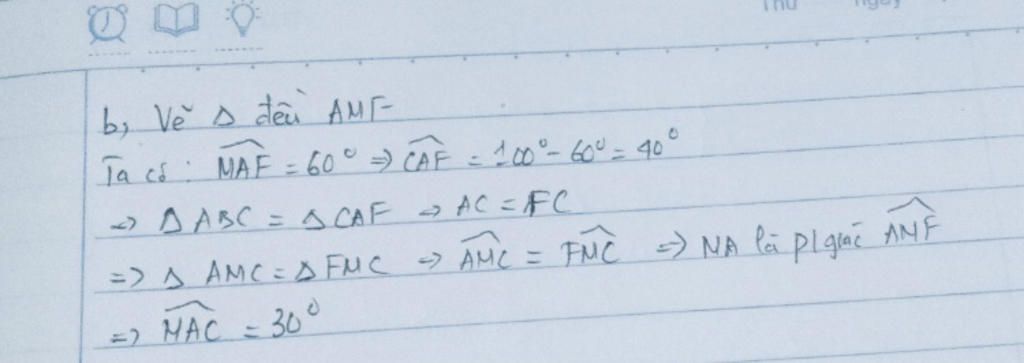 Thứ ngày
b, Vẽ Δ đều AMF
Ta có : \widehat{MAF} = 60° ⇒ \widehat{CAF} = 100° - 60° = 40°
⇒ Δ ABC = Δ CAF ⇒ AC = FC
=> Δ AMC = Δ FMC ⇒ \widehat{AMC} = \widehat{FMC} ⇒ MA là p/giác \widehat{AMF}
=> \widehat{MAC} = 30°